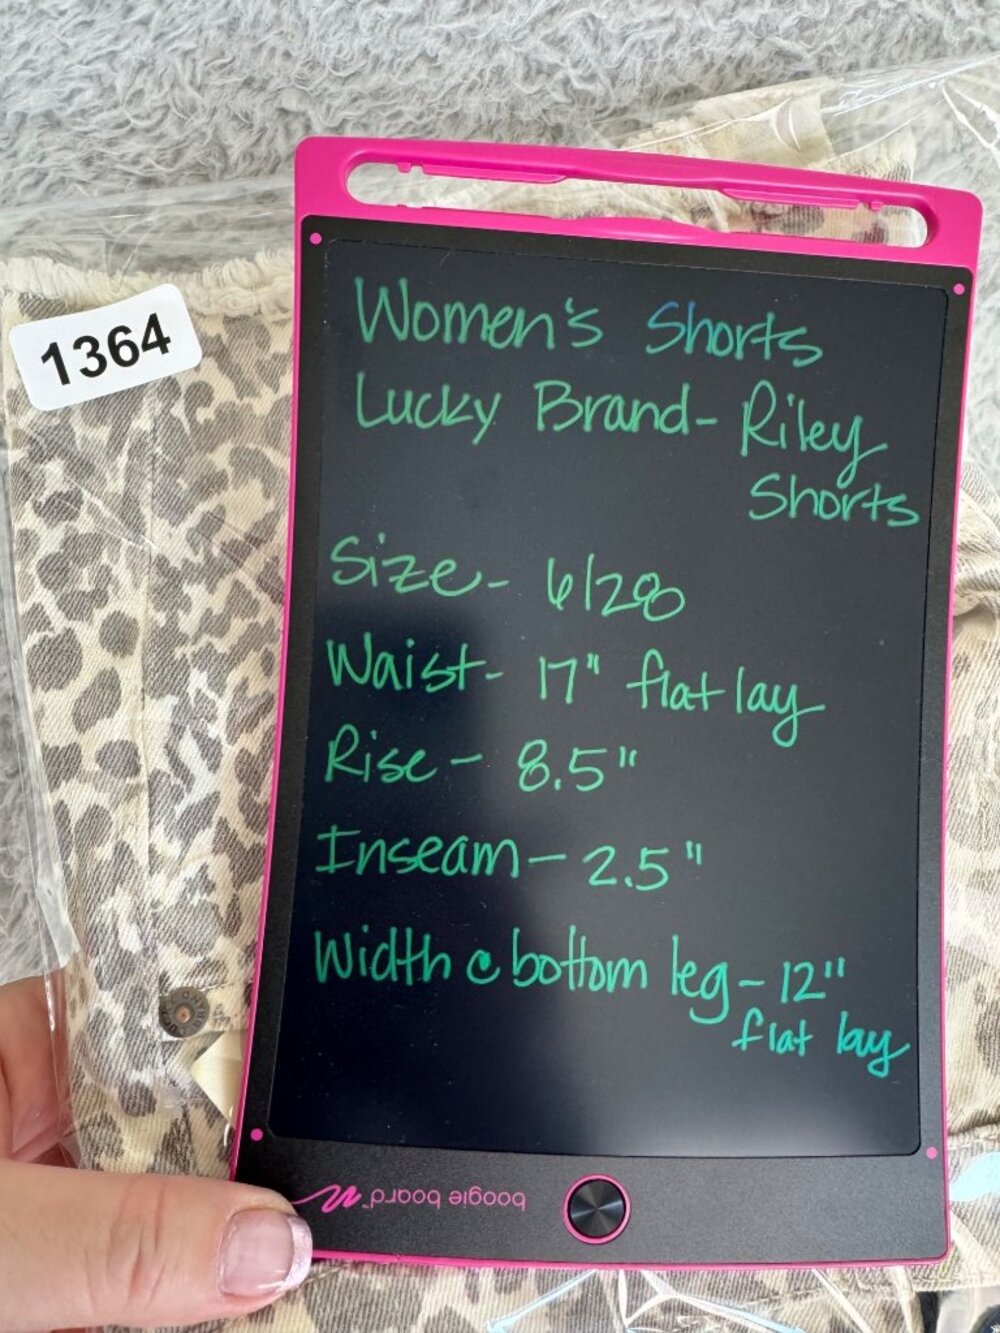 1364
Women's Shorts
Lucky Brand- Riley
Shorts
Size- 6/28
Waist- 17" flat lay
Rise- 8.5"
Inseam- 2.5"
Width @ bottom leg- 12"
flat lay
boogie board™